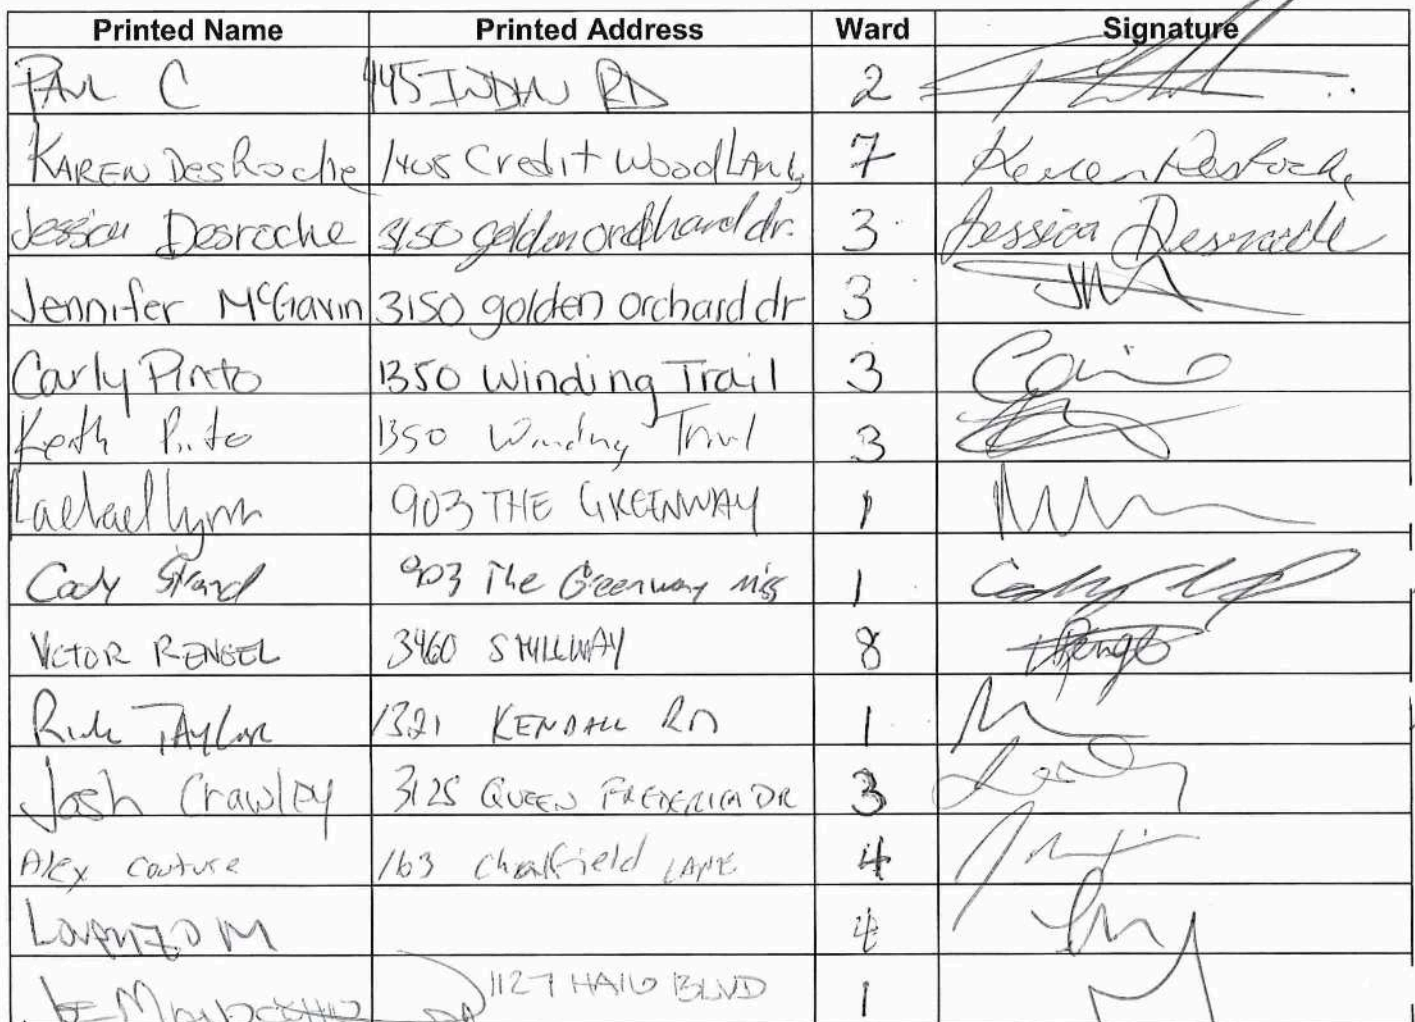 Printed Name Printed Address Ward Signature
PAUL C 445 INDIAN RD 2
KAREN DesRoche 1405 Credit WoodLANDS 7 Karen DesRoche
Jessica Desroche 3150 golden orchard dr. 3 Jessica Desroche
Jennifer McGavin 3150 golden orchard dr 3
Carly Pinto 1350 Winding Trail 3
Keith Pinto 1350 Winding Trail 3
Lynn 903 THE GREENWAY 1
Cody Strand 903 The Greenway Miss 1
VICTOR RENGEL 3460 8 Rengel
Rick TAYLOR 1321 KENDALL RD 1
Josh Crawley 3125 QUEEN FREDERICA DR 3
Alex Couture 163 LANE 4
Lorenzo M 4
JOE 1127 HAIG BLVD 1